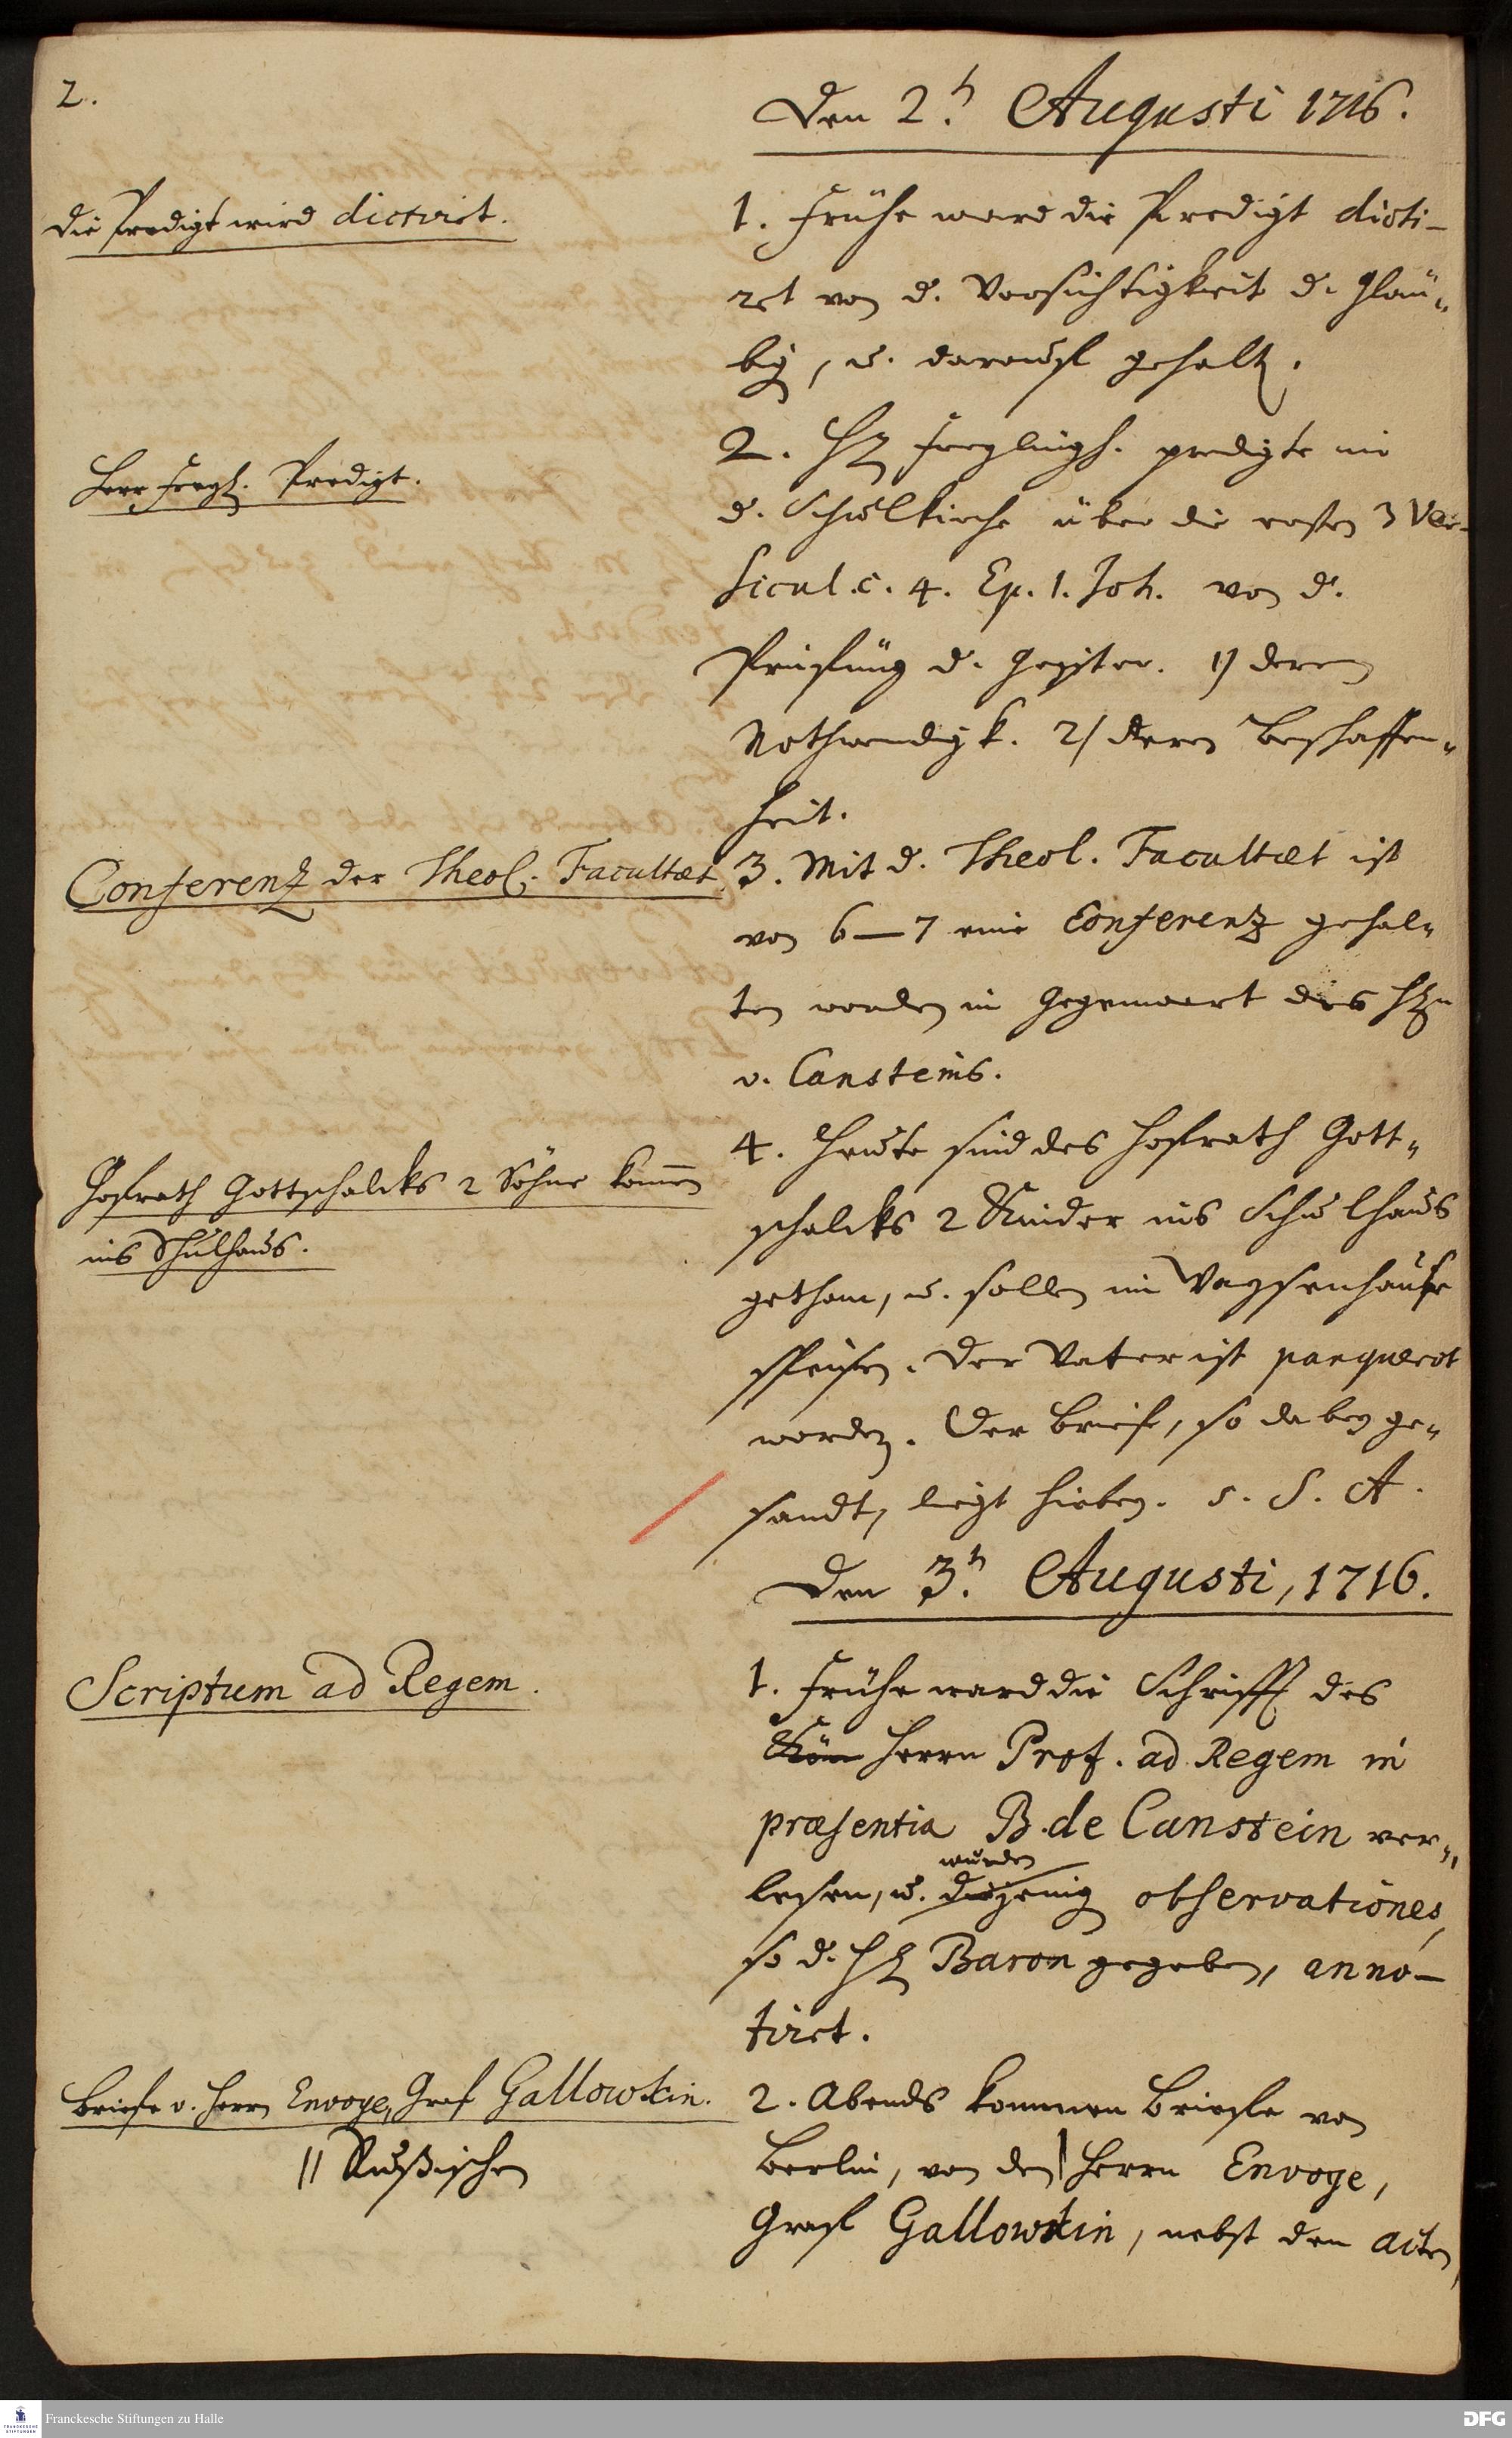 2.
Den 2.t Augusti 1716.
Die Predigt wird dictiret.
1. Frühe ward die Predigt dicti-
ret von d. Vorsichtigkeit d. Gläu-
big, u. darauf gehalt.
Herr Freyl. Predigt.
2. H. Freylingh. predigte in
d. Schulkirche über die ersten 3 Ver-
sicul. c. 4. Ep. 1. Joh. von d.
Prüfung d. Geister. 1) deren
Nothwendigk. 2) deren Beschaffen-
heit.
Conferentz der Theol. Facultæt.
3. Mit d. Theol. Facultæt ist
von 6–7 eine Conferentz gehal-
ten worden in Gegenwart des Hn
v. Cansteins.
Hofrath Gottschalcks 2 Söhne kom̄en
ins Schulhaus.
4. Heute sind des Hofrath Gott-
schalcks 2 Kinder ins Schulhaus
gethan, u. sollen im Waysenhause
speisen. Der Vater ist panquerot
worden. Der Brief, so dabey ge-
sandt, liegt hierbey. s. S. A.
Den 3.t Augusti, 1716.
Scriptum ad Regem.
1. Frühe ward die Schrifft des
Kön Herrn Prof. ad Regem in
præsentia B. de Canstein ver-
wurden
lesen, u. diejenig observationes,
so d. H. Baron gegeben, anno-
tiret.
Briefe v. Herrn Envoye, Graf Gallowkin.
2. Abends kommen Briefe von
|| Rußischen
Berlin, von den | Herrn Envoye,
Graf Gallowkin, nebst den acten,
Franckesche Stiftungen zu Halle
DFG